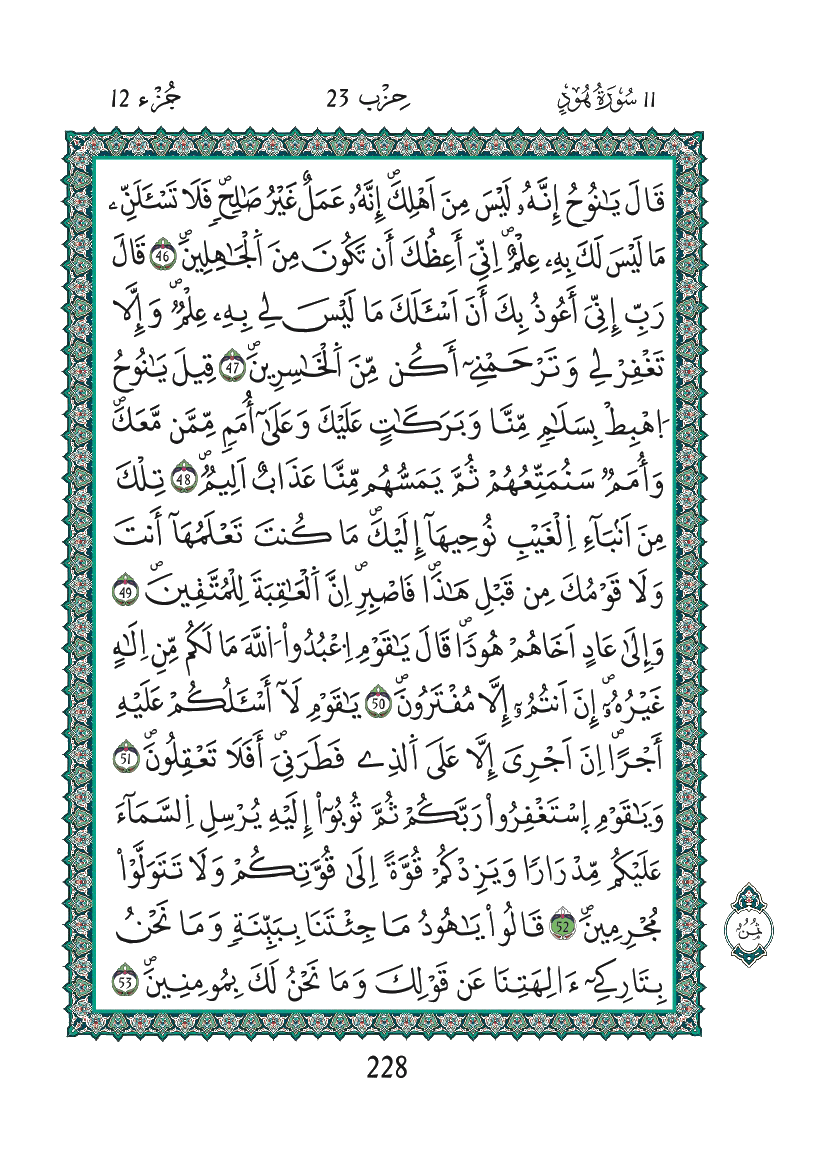 ١١ سُورَةُ هُودٍ حِزْب 23 جُزْء 12
قَالَ يَٰنُوحُ إِنَّهُۥ لَيْسَ مِنَ اَهْلِكَۖ إِنَّهُۥ عَمَلٌ غَيْرُ صَٰلِحٖۖ فَلَا تَسْـَٔلَنِّۦ
مَا لَيْسَ لَكَ بِهِۦ عِلْمٌۖ اِنِّيَ أَعِظُكَ أَن تَكُونَ مِنَ اَ۬لْجَٰهِلِينَۖ 46 قَالَ
رَبِّ إِنِّيَ أَعُوذُ بِكَ أَنَ اَسْـَٔلَكَ مَا لَيْسَ لِے بِهِۦ عِلْمٞۖ وَإِلَّا
تَغْفِرْ لِے وَتَرْحَمْنِےٓ أَكُن مِّنَ اَ۬لْخَٰسِرِينَۖ 47 قِيلَ يَٰنُوحُ
اُ۪هْبِطْ بِسَلَٰمٖ مِّنَّا وَبَرَكَٰتٍ عَلَيْكَ وَعَلَىٰٓ أُمَمٖ مِّمَّن مَّعَكَۖ
وَأُمَمٞ سَنُمَتِّعُهُمْ ثُمَّ يَمَسُّهُم مِّنَّا عَذَابٌ اَلِيمٞۖ 48 تِلْكَ
مِنَ اَنۢبَآءِ اِ۬لْغَيْبِ نُوحِيهَآ إِلَيْكَۖ مَا كُنتَ تَعْلَمُهَآ أَنتَ
وَلَا قَوْمُكَ مِن قَبْلِ هَٰذَاۖ فَاصْبِرِۖ اِنَّ اَ۬لْعَٰقِبَةَ لِلْمُتَّقِينَۖ 49
وَإِلَىٰ عَادٍ اَخَاهُمْ هُودٗاۖ قَالَ يَٰقَوْمِ اِ۟عْبُدُواْ اُ۬للَّهَ مَا لَكُم مِّنِ اِلَٰهٍ
غَيْرُهُۥٓۖ إِنَ اَنتُمُۥٓ إِلَّا مُفْتَرُونَۖ 50 يَٰقَوْمِ لَآ أَسْـَٔلُكُمْ عَلَيْهِ
أَجْراًۖ اِنَ اَجْرِيَ إِلَّا عَلَى اَ۬لذِے فَطَرَنِيَۖ أَفَلَا تَعْقِلُونَۖ 51
وَيَٰقَوْمِ اِ۪سْتَغْفِرُواْ رَبَّكُمْ ثُمَّ تُوبُوٓاْ إِلَيْهِ يُرْسِلِ اِ۬لسَّمَآءَ
عَلَيْكُم مِّدْرَارٗا وَيَزِدْكُمْ قُوَّةً اِلَىٰ قُوَّتِكُمْ وَلَا تَتَوَلَّوْاْ
مُجْرِمِينَۖ 52 قَالُواْ يَٰهُودُ مَا جِئْتَنَا بِبَيِّنَةٖ وَمَا نَحْنُ
ثُمُن
بِتَارِكِےٓ ءَالِهَتِنَا عَن قَوْلِكَ وَمَا نَحْنُ لَكَ بِمُومِنِينَۖ 53
228